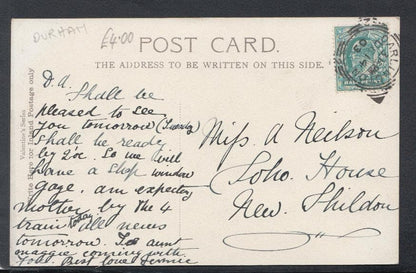 DURHAM
£4.00
POST CARD.
THE ADDRESS TO BE WRITTEN ON THIS SIDE.
Valentine's Series
Write Here for Inland Postage only
D.A.
Shall be
pleased to see
you tomorrow (Tuesday)
Shall be ready
by 2'o. So we will
have a shop window
gage, am expecting
mother by the 4
train today All news
tomorrow. Is aunt
maggie coming with
you. Best love
Miss A Neilson
Soho House
New Shildon